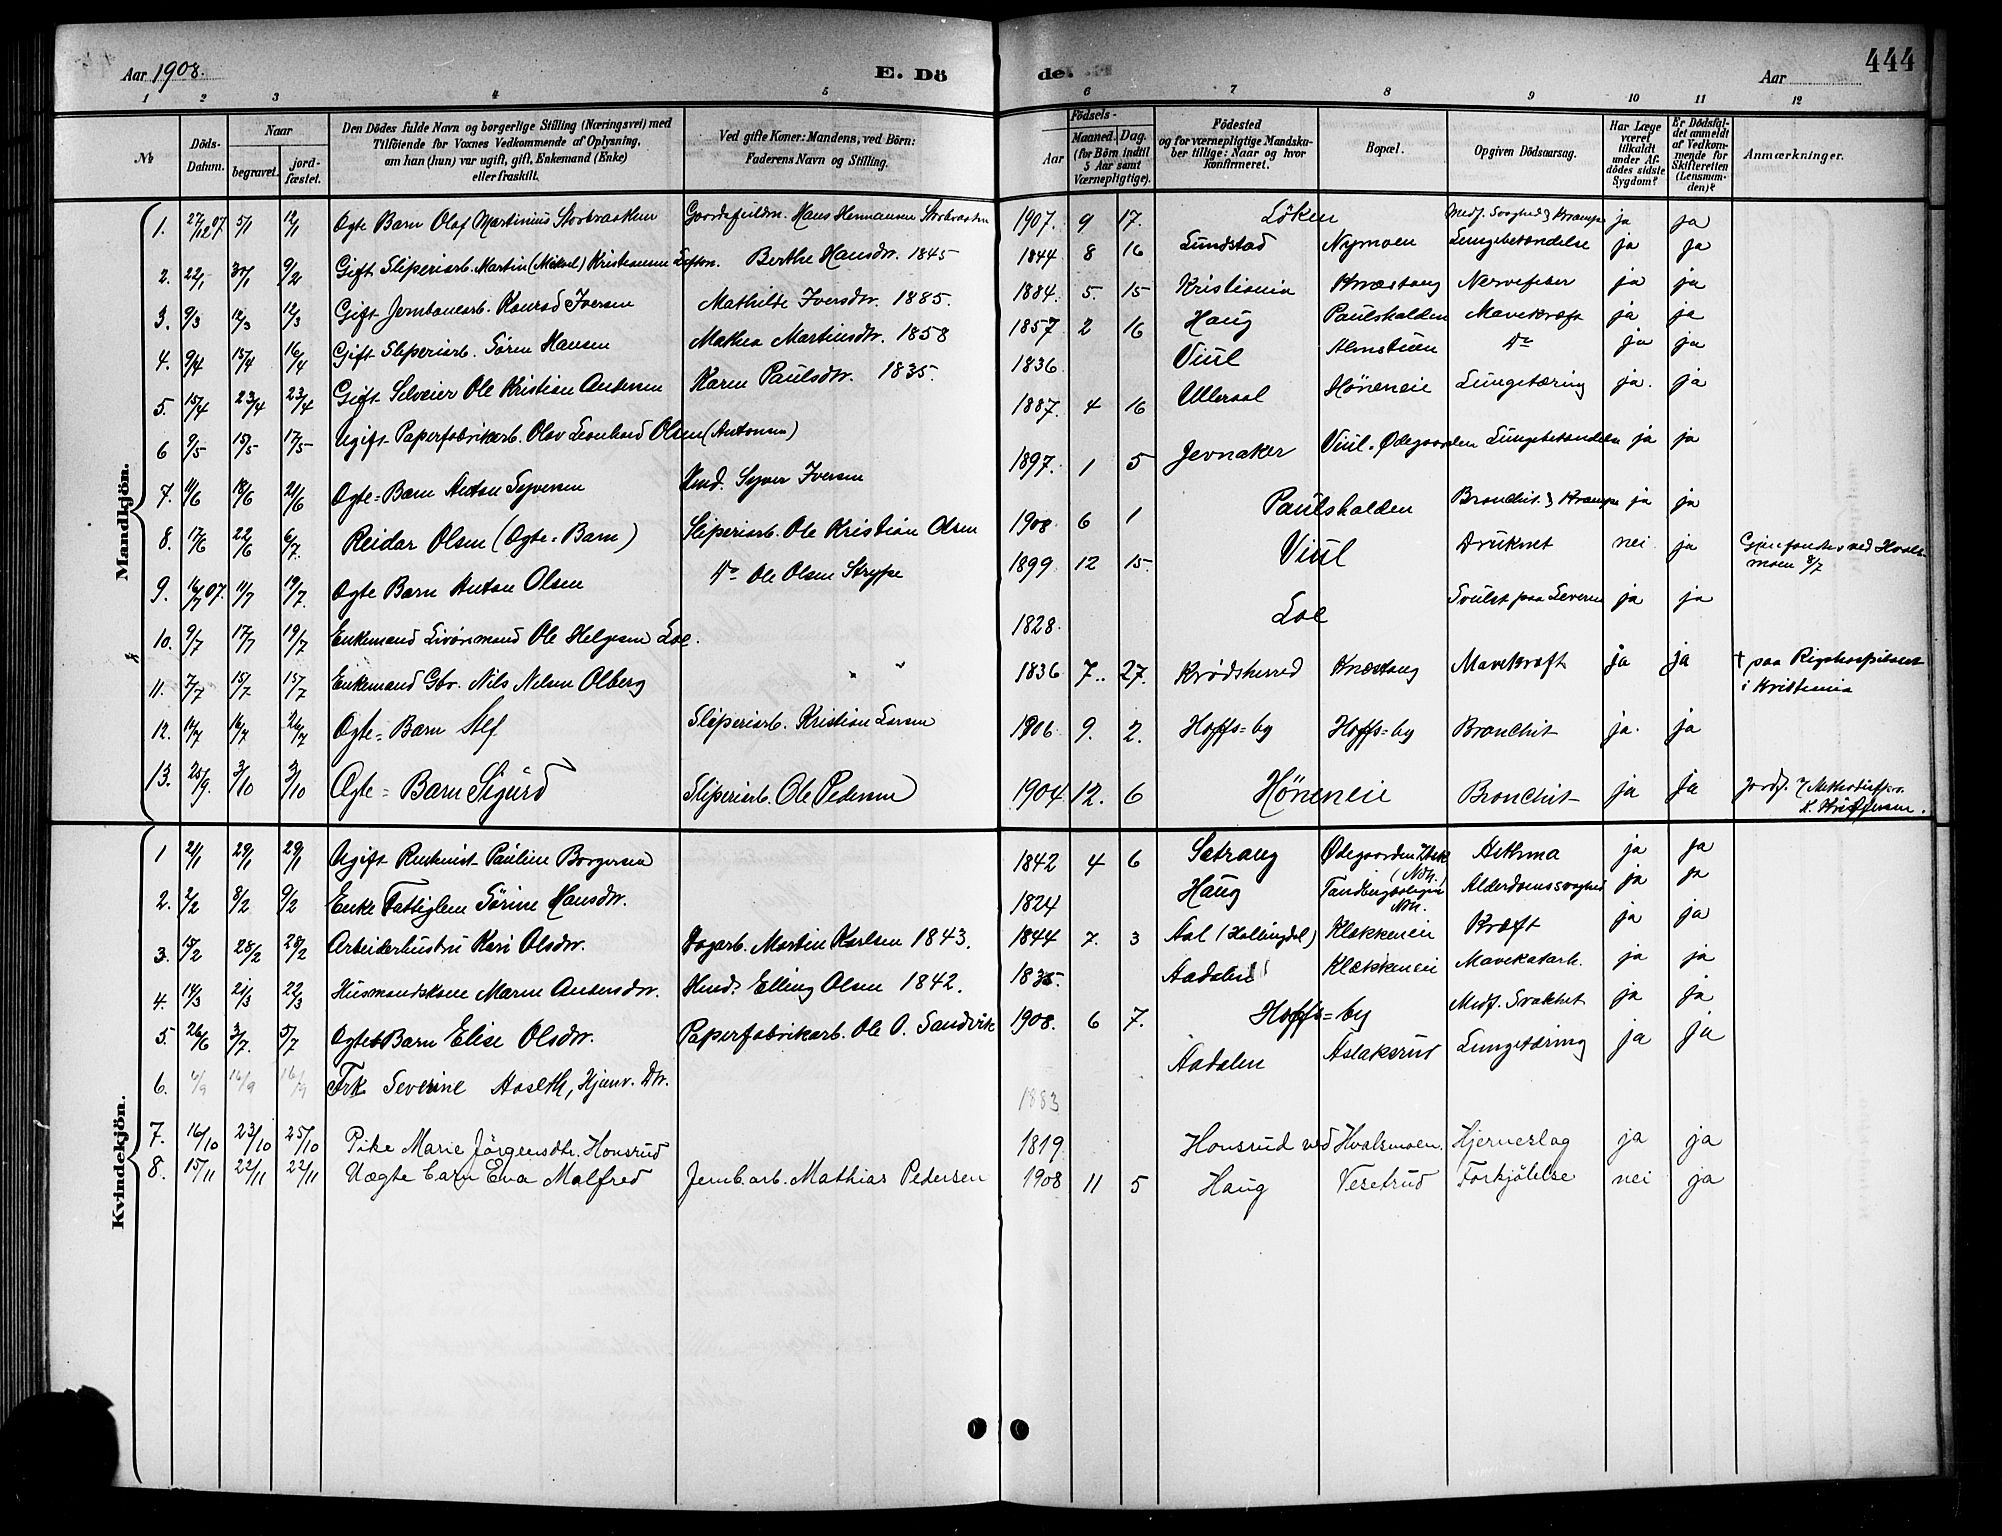 Aar 1908. E. Dö de. Aar 444
1 2 3 4 5 6 7 8 9 10 11 12
№ Döds-Datum. Naar begravet. jord-fæstet. Den Dödes fulde Navn og borgerlige Stilling (Næringsvei) med Tilföiende for Voxnes Vedkommende af Oplysning, om han (hun) var ugift, gift, Enkemand (Enke) eller fraskilt. Ved gifte Koner: Mandens, ved Börn: Faderens Navn og Stilling. Födsels- Aar Maaned. Dag. (for Börn indtil 5 Aar samt Værnepligtige). Födested og for værnepligtige Mandska-ber tillige: Naar og hvor konfirmeret. Bopæl. Opgiven Dödsaarsag. Har Læge været tilkaldt under Af-dödes sidste Sygdom? Er Dödsfal-det anmeldt af Vedkom-mende for Skifteretten (Lensman-den)? Anmærkninger.
Mandkjön.
1. 27/12 07 5/1 12/1 Ægte Barn Olaf Martinius Storbraaten Gaardsfuldm. Hans Hermansen Storbraaten 1907. 9 17. Löken Medf. Svaghed & Krampe ja ja
2. 22/1 30/1 9/2 Gift Sliperiarb. Martin (Mikael) Kristiansen Berthe Hansdtr. 1845 1844 8 16 Lundstad Nymoen Lungebetændelse ja ja
3. 9/3 12/3 12/3 Gift Jernbanearb. Konrad Iversen Mathilde Iversdtr. 1885. 1884. 5. 15 Kristiania Knæstang Nervefeber ja ja
4. 9/4 15/4 16/4 Gift Sliperiarb. Sören Hansen Mathea Martinsdtr. 1858 1857 2 16 Haug Paulshalden Mavekræft ja ja
5. 15/4 23/4 23/4 Gift Selveier Ole Kristian Andersen Karen Paulsdtr. 1835. 1836. Viul Almstuen Do ja ja
6 9/5 15/5 17/5 Ugift Paperfabrikarb. Olav Leonhard Olsen (Antonsen) 1887. 4 16 Ulleraal Höneneie Lungetæring ja. ja
7. 11/6 18/6 21/6 Ægte-Barn Anton Syversen Hmd. Syver Iversen 1897. 1 5 Jevnaker Viul-Ødegaarden Lungebetændelse ja ja
8. 17/6 22/6 6/7. Reidar Olsen (Ægte-Barn) Sliperiarb. Ole Kristian Olsen 1908 6 1 Paulshalden Bronchit. & Krampe ja ja
9. 16/7 07. 11/7 19/7. Ægte Barn Anton Olsen Do Ole Olsen Strype 1899 12 15. Viul Druknet nei ja Gjenfunden ved Hvals-moen 8/7
10. 9/7 17/7 19/7 Enkemand Livörmand Ole Helgesen Loe. 1828. Loe Svulst paa Leveren ja ja
11. 7/7 15/7 15/7 Enkemand Gbr. Nils Nilsen Olberg " 1836 7. 27. Krødsherred Knæstang Mavekræft ja ja † paa Rigshospitalet i Kristiania
12. 14/7 16/7 26/7 Ægte-Barn Alf Sliperiarb. Kristian Larsen 1906 9. 2. Hoffs-by Hoffs-by Bronchit ja. ja
13. 25/9. 3/10 3/10 Ægte-Barn Sigurd Sliperiarb. Ole Pedersen 1904 12. 6 Höneneie Bronchit ja ja
Kvindekjön.
1 21/1 29/1 29/1 Ugift Pauline Borgersen 1842 4 6 Setrang Ødegaarden Astma ja ja
2. 2/2 8/2 9/2 Enke Fattiglem Sörine Hansdtr. 1824 Haug Alderdomssvaghed ja ja
3. 18/2 28/2 28/2 Arbeiderhustru Kari Olsdtr. Dagarb. Martin Karlsen 1843. 1844 7. 3 Aal (Hallingdal) Klækkeneie Kræft ja ja
4. 14/3 21/3 22/3 Husmandskone Maren Andersdtr. Hmd. Elling Olsen 1842. 1835. Aadalen Klækkeneie Mavekatarh. ja ja
5. 26/6 3/7. 5/7 Ægte Barn Elise Olsdtr. Paperfabrikarb. Ole O. Sandvik 1908. 6 7. Hoffs-by Medf. Svakhet ja ja
6. Frk Severine Aaseth, Hjemv. Dtr. 1883 Aadalen Aslaksrud Lungetæring ja ja
7. 16/10 23/10 25/10 Pike Marie Jörgensdtr. Honsrud 1819 Honsrud ved Hvalsmoen. Hjerneslag ja ja
8. 15/11 22/11 22/11 Uægte barn Eva Malfred Jernb. arb. Mathias Pedersen 1908 11 5 Haug Vesetrud Forkjölelse nei ja